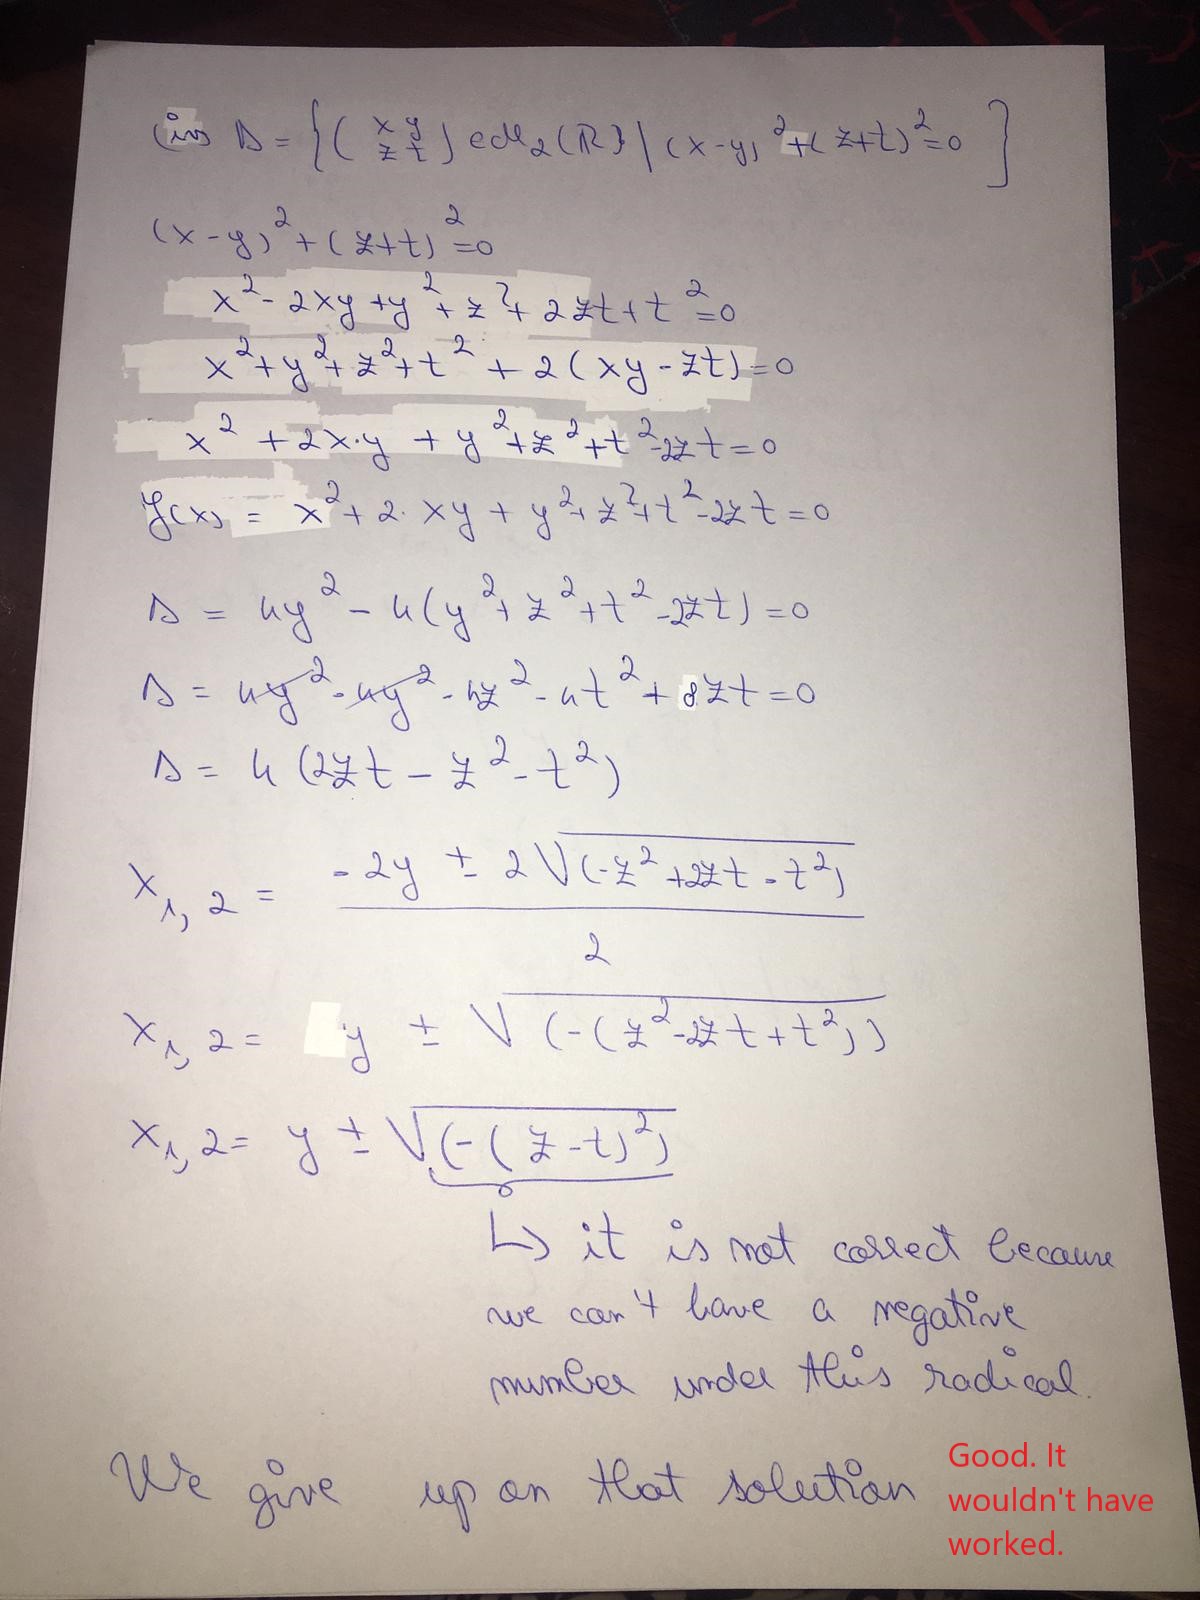 (iv) S = { ( x y z t ) ∈ M₂(R) | (x-y)² + (z+t)² = 0 }
(x-y)² + (z+t)² = 0
x² - 2xy + y² + z² + 2zt + t² = 0
x² + y² + z² + t² + 2(xy - zt) = 0
x² + 2x·y + y² + z² + t² - 2zt = 0
f(x) = x² + 2·xy + y² + z² + t² - 2zt = 0
Δ = 4y² - 4(y² + z² + t² - 2zt) = 0
Δ = 4y² - 4y² - 4z² - 4t² + 8zt = 0
Δ = 4(2zt - z² - t²)
x₁,₂ = (-2y ± 2√(-z² + 2zt - t²)) / 2
x₁,₂ = y ± √(-(z² - 2zt + t²))
x₁,₂ = y ± √(-(z - t)²)
↳ it is not correct because
we can't have a negative
number under this radical.
We give up on that solution
Good. It
wouldn't have
worked.